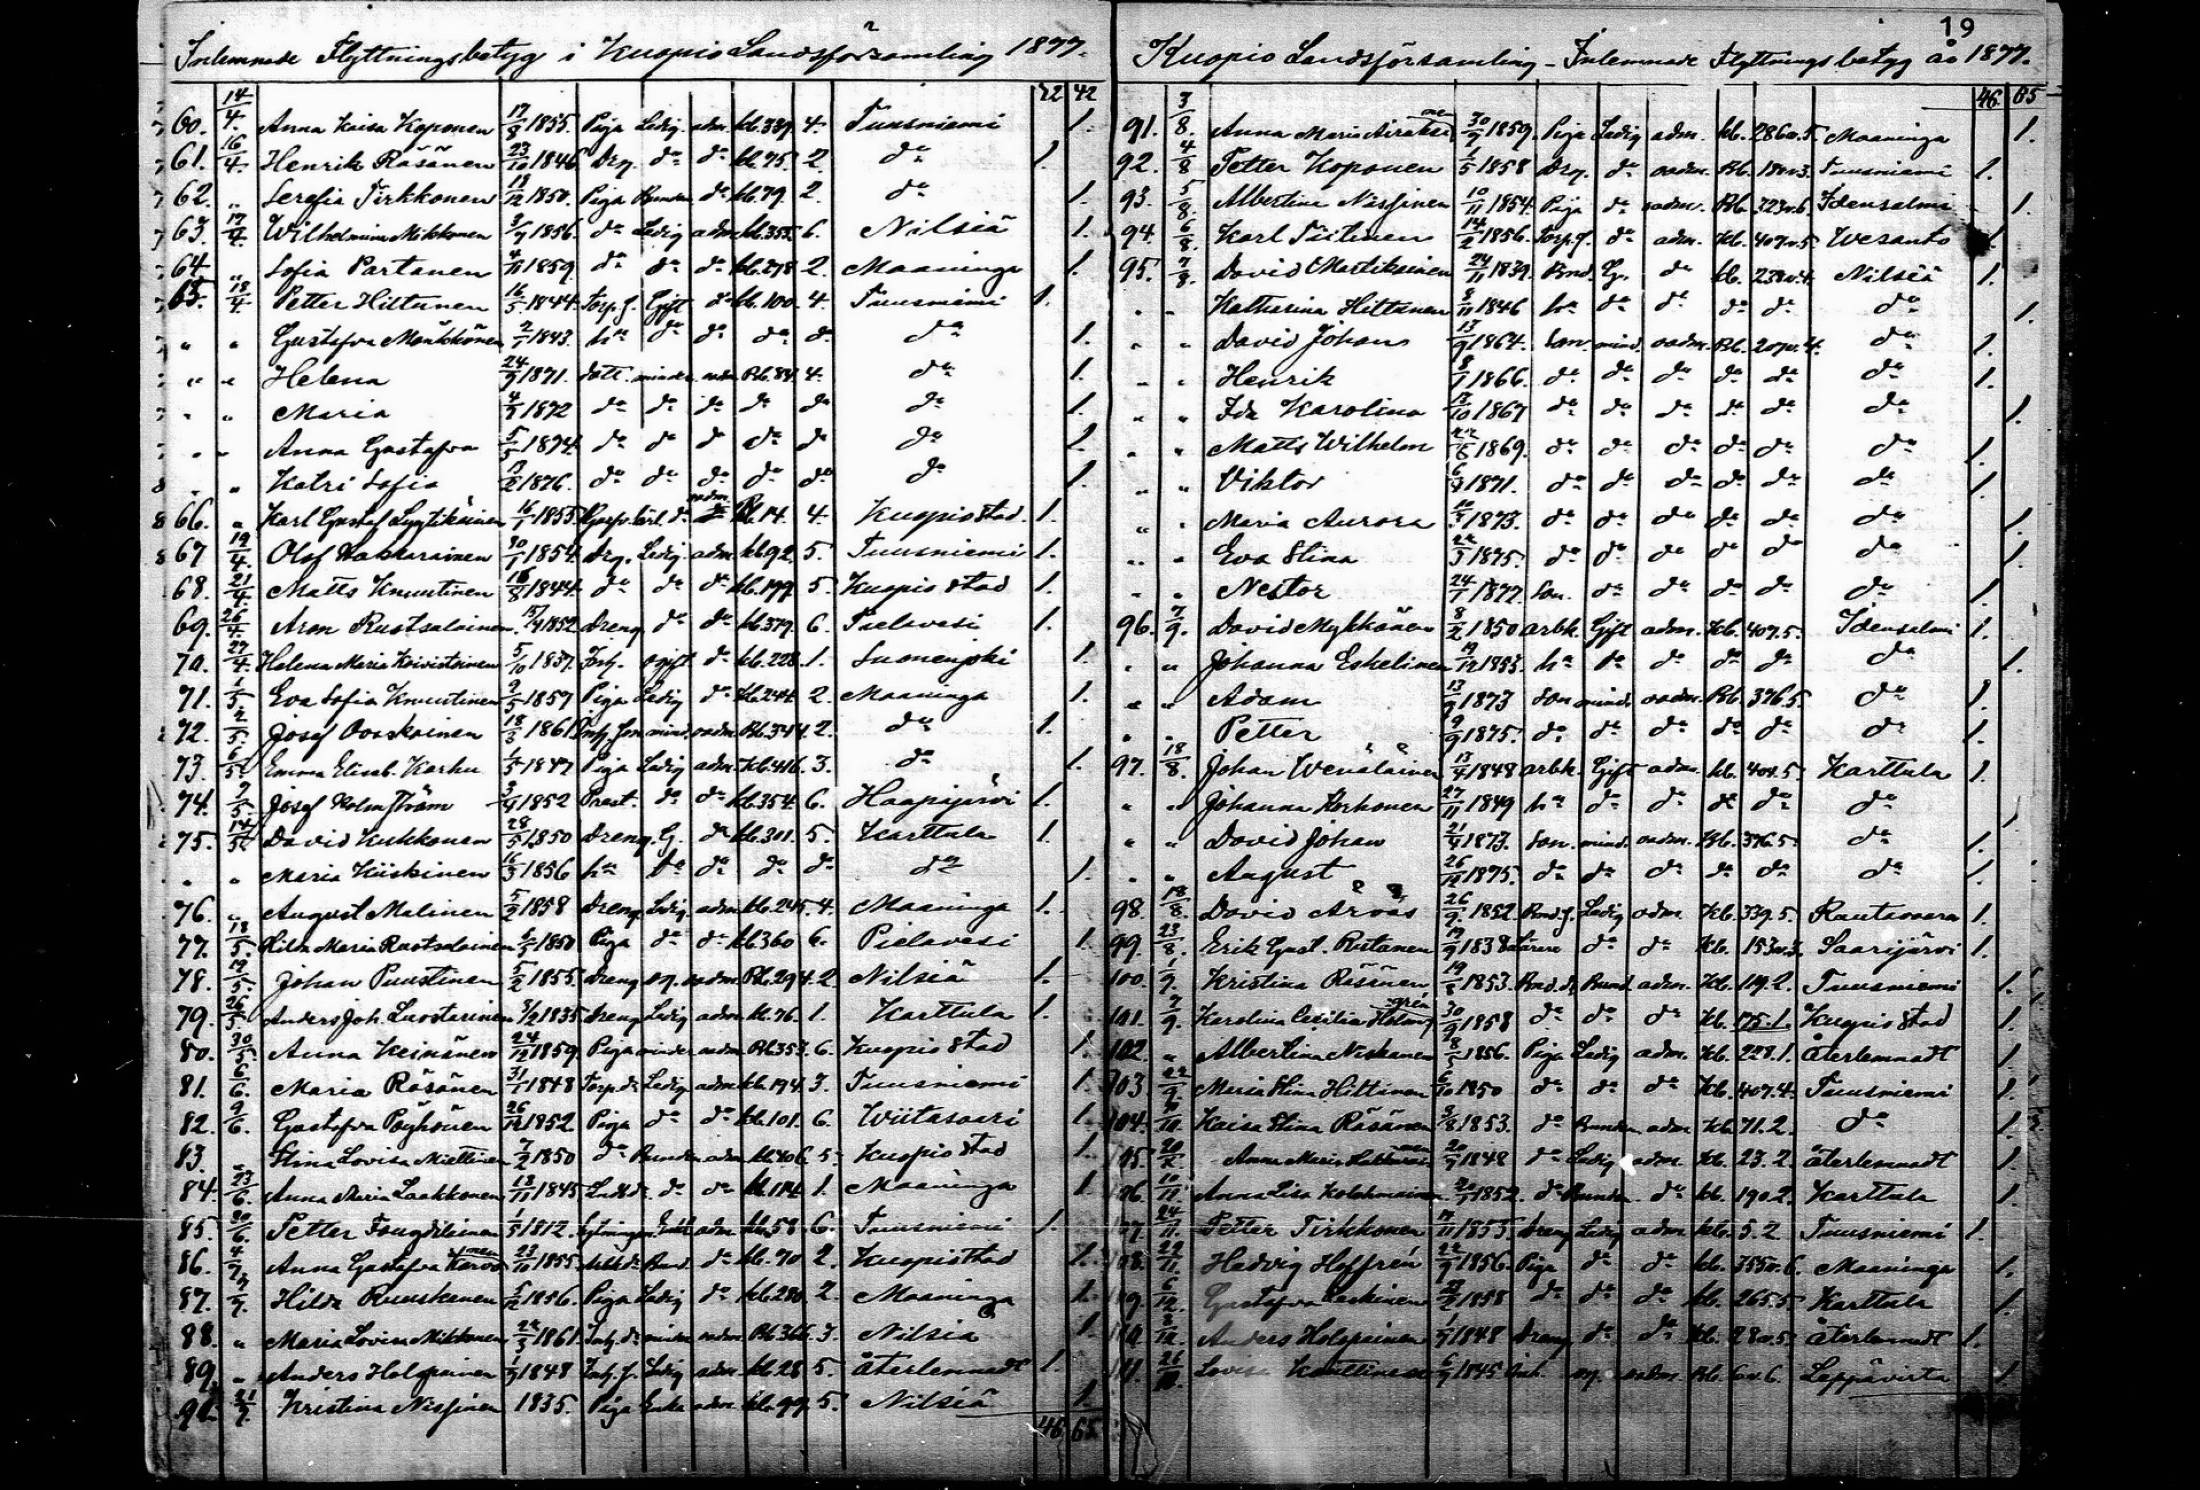 Inlemnade Flyttningsbetyg i Kuopio Landsförsamling 1877.
22 42
60. 14/4. Anna Kaisa Koponen 17/8 1855. Piga Ledig. adm. kb. 339. 4. Tuusniemi 1.
61. 16/4. Henrik Räsänen 23/10 1846 Drg. do do kb. 75. 2. do 1.
62. " Serafia Tirkkonen 18/12 1850. Piga do kb. 79. 2. do 1.
63. 17/4. Wilhelmina Mikkonen 3/9 1856. do Ledig adm. kb. 355. 6. Nilsiä 1.
64. " Sofia Partanen 4/11 1859. do do do kb. 278 2. Maaninga 1.
65. 18/4. Petter Hiltunen 16/5 1844. Torp.s. Gift do kb. 100. 4. Tuusniemi 1.
" " Gustafva Mönkkönen 2/7 1843. hu do do do do do 1.
" " Helena 24/9 1871. dott. minder. oadm. Rb. 84. 4. do 1.
" " Maria 4/2 1872 do do do do do do 1.
" " Anna Gustafva 5/5 1874. do do do do do do 1.
" " Katri Sofia 13/2 1876. do do do do do do 1.
66. " Karl Gustaf Lyytikäinen 16/7 1855. do oadm. Rb. 14. 4. Kuopio stad. 1.
67 19/4. Olof Kakkarainen 30/7 1854. Drg. Ledig. adm. kb. 92. 5. Tuusniemi 1.
68. 21/4. Matts Knuutinen 16/8 1844. do do do kb. 199 5. Kuopio stad 1.
69. 26/4. Aron Ruotsalainen 15/4 1852. Dreng do do kb. 379. 6. Pielavesi 1.
70. 27/4. Helena Maria Koivistoinen 5/10 1837. Inh. ogift. do kb. 228. 1. Suonenjoki 1.
71. 1/5. Eva Sofia Knuutinen 9/5 1857 Piga Ledig do kb. 244. 2. Maaninga 1.
72. 2/5. Josef Ovaskainen 18/3 1861. Inh. son mind. oadm. Rb. 344. 2. do 1.
73. 6/5. Emma Elisab. Karhu 1/5 1847 Piga Ledig adm. Kb. 416. 3. do 1.
74. 9/5. Josef Holmström 3/9 1852 Prest. do do kb. 354. 6. Haapajärvi 1.
75. 14/5. David Kukkonen 28/5 1850 Dreng. G. do kb. 301. 5. Karttula 1.
" " Maria Kiiskinen 16/3 1856 hu do do do do do 1.
76. " August Malinen 5/2 1858 Dreng. Ledig adm. kb. 245. 4. Maaninga 1.
77. 18/5. Hilda Maria Ruotsalainen 6/5 1850 Piga do do kb. 360 6. Pielavesi 1.
78. 19/5. Johan Puustinen 5/2 1855. Dreng og. oadm. Rb. 294. 2. Nilsiä 1.
79. 26/5. Anders Joh. Luostarinen 3/2 1835 Dreng Ledig adm. kb. 76. 1. Karttula 1.
80. 30/5. Anna Keinänen 24/12 1859. Piga minder. oadm. Rb. 353. 6. Kuopio stad 1.
81. 6/6. Maria Räsänen 31/7 1848 Torp. d. Ledig adm. kb. 194. 3. Tuusniemi 1.
82. 9/6. Gustafva Pöyhönen 26/12 1852 Piga do do kb. 101. 6. Wiitasaari 1.
83. " Stina Lovisa Miettinen 7/2 1850 do adm. kb. 406. 5. Kuopio stad 1.
84. 23/6. Anna Maria Laakkonen 13/11 1845 do do kb. 114. 1. Maaninga 1.
85. 30/6. Petter 1/5 1812. adm. kb. 58. 6. Tuusniemi 1.
86. 4/7. Anna Gustafva Karvonen 23/10 1855. do kb. 70 2. Kuopio stad 1.
87. 7/7. Hilda Ruuskanen 5/12 1856. Piga Ledig do kb. 280. 2. Maaninga 1.
88. " Maria Lovisa Mikkonen 22/3 1861. Inh. d. minder. oadm. Rb. 366. 3. Nilsiä 1.
89. " Anders Holopainen 1/9 1848 Inh. s. Ledig adm. kb. 28 5. återlemnadt 1.
90. 21/7. Kristina Nissinen 1835. Piga Enka adm. kb. 99. 5. Nilsiä 1.
46 65
19
Kuopio Landsförsamling - Inlemnade Flyttningsbetyg år 1877.
46 65
91. 3/8. Anna Maria Airaksinen 30/9 1859. Piga Ledig adm. kb. 286 5. Maaninga 1.
92. 4/8 Petter Koponen 1/5 1858 Dreg. do oadm. Rb. 180 3. Tuusniemi 1.
93. 5/8. Albertina Nissinen 10/11 1854. Piga do oadm. Rb. 323 6. Idensalmi 1.
94. 6/8. Karl Tiitinen 14/2 1856. Torp.s. do adm. Kb. 407 5. Wesanto 1.
95. 7/8. David Martikainen 24/11 1839. Bnd. G. do kb. 238 4. Nilsiä 1.
" " Katharina Hiltunen 8/11 1846 hu do do do do do 1.
" " David Johan 13/9 1864. Son. mind. oadm. Rb. 207 4. do 1.
" " Henrik 8/7 1866. do do do do do do 1.
" " Ida Karolina 17/10 1867 do do do do do do 1.
" " Matts Wilhelm 22/5 1869. do do do do do do 1.
" " Viktor 6/4 1871. do do do do do do 1.
" " Maria Aurora 10/3 1873. do do do do do do 1.
" " Eva Stina 22/3 1875. do do do do do do 1.
" " Nestor 24/7 1877. Son. do do do do do 1.
96. 7/9. David Mykkänen 8/2 1850 arbk. Gift adm. Kb. 407. 5. Idensalmi 1.
" " Johanna Eskelinen 19/12 1855. hu do do do do do 1.
" " Adam 13/9 1873 Son mind. oadm. Rb. 376. 5. do 1.
" " Petter 9/9 1875. do do do do do do 1.
97. 18/8. Johan Wenäläinen 13/4 1848 arbk. Gift adm. kb. 404. 5 Karttula 1.
" " Johanna Korhonen 27/11 1849 hu do do do do do 1.
" " David Johan 21/4 1873. Son. mind. oadm. Rb. 376. 5. do 1.
" " August 26/12 1875. do do do do do do 1.
98. 18/8. David Arvas 26/9 1852. Bnd. s. Ledig adm. Kb. 339. 5. Rautavaara 1.
99. 23/8. Erik Gust. Rutanen 19/9 1838 Lärare do do Kb. 153 3. Saarijärvi 1.
100. 1/9. Kristina Räsänen 19/8 1853. Bnd. d. adm. Kb. 119. 2. Tuusniemi 1.
101. 7/9. Karolina Cecilia Holmgrén 30/9 1858 do do do Kb. 175. 1. Kuopio stad 1.
102. " Albertina Niskanen 8/5 1856. Piga Ledig adm. Kb. 228. 1. återlemnadt 1.
103 22/9. Maria Stina Hiltunen 6/10 1850 do do do Kb. 407. 4. Tuusniemi 1.
104. Kaisa Stina Räsänen 3/8 1853. do adm Kb. 71. 2. do 1.
105. Anna Maria 20/9 1848 do Ledig adm. Kb. 23. 2. återlemnadt 1.
106. 10/11. Anna Lisa Kolehmainen 20/9 1852. do do kb. 190. 2. Karttula 1.
107. 24/11. Petter Tirkkonen 17/11 1855. Dreng Ledig adm kb. 5. 2 Tuusniemi 1.
108. 29/11. Hedvig Hoffrén 22/9 1856. Piga do do kb. 355 6. Maaninga 1.
109. 6/12. Gustafva Leskinen 22/2 1858 do do do kb. 265. 5 Karttula 1.
110. 8/12. Anders Holopainen 1/9 1848 Dreng do do Kb. 28 5. återlemnadt 1.
111. Lovisa 6/9 1845 Inh. og. oadm. Rb. 6. Leppävirta 1.